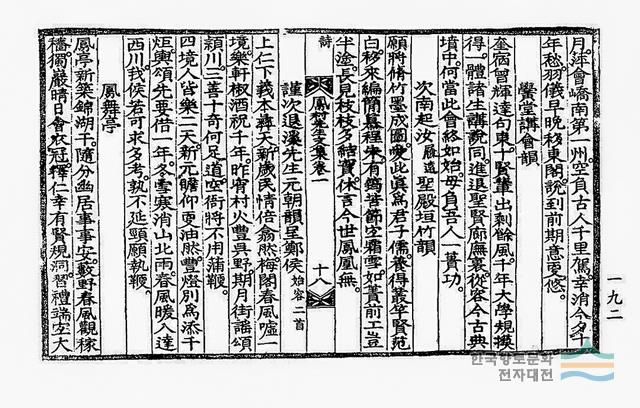 月萍會嶠南第一州空負古人千里駕幸消今夕十
年愁羽儀早晩移東閣說到前期意更悠
黌堂講會韻
奎宿曾輝達句東一賢叢出剩餘風千年大學規模
得一體諸生講說同進退聖賢廊廡裏從容今古典
墳中何當此會終如始毋負吾人一簣功
次南起汝履道聖殿垣竹韻
願將脩竹墨成圖愛此眞爲君子儒養得叢竿賢範
白移來編簡程朱有筠苦節空霜雪如簣前工豈
半塗長見枝枝多結實休言今世鳳凰無
詩 鳳村先生文集卷一 十八
謹次退溪先生元朝韻呈鄭侯始容二首
上仁下義本彛天新歲民情倍翕然梅閣春風噓一
境樂軒椒酒祝千年昨宵村火豐具野期月街謠頌
潁川三善十奇何足道空衙將不用蒲鞭
四境人皆樂二天新元瞻仰更油然豐燈別爲添千
炬輿頌先要倍一年冬雪寒消山北雨春風暖入達
西川我侯若可求多考孰不延頸願執鞭
鳳舞亭
鳳亭新築錦湖干隨分幽居事事安藪野春風觀稼
穡獨巖晴日會衣冠釋仁幸有賢規洞習禮端空大
一九二
한국향토문화
전자대전